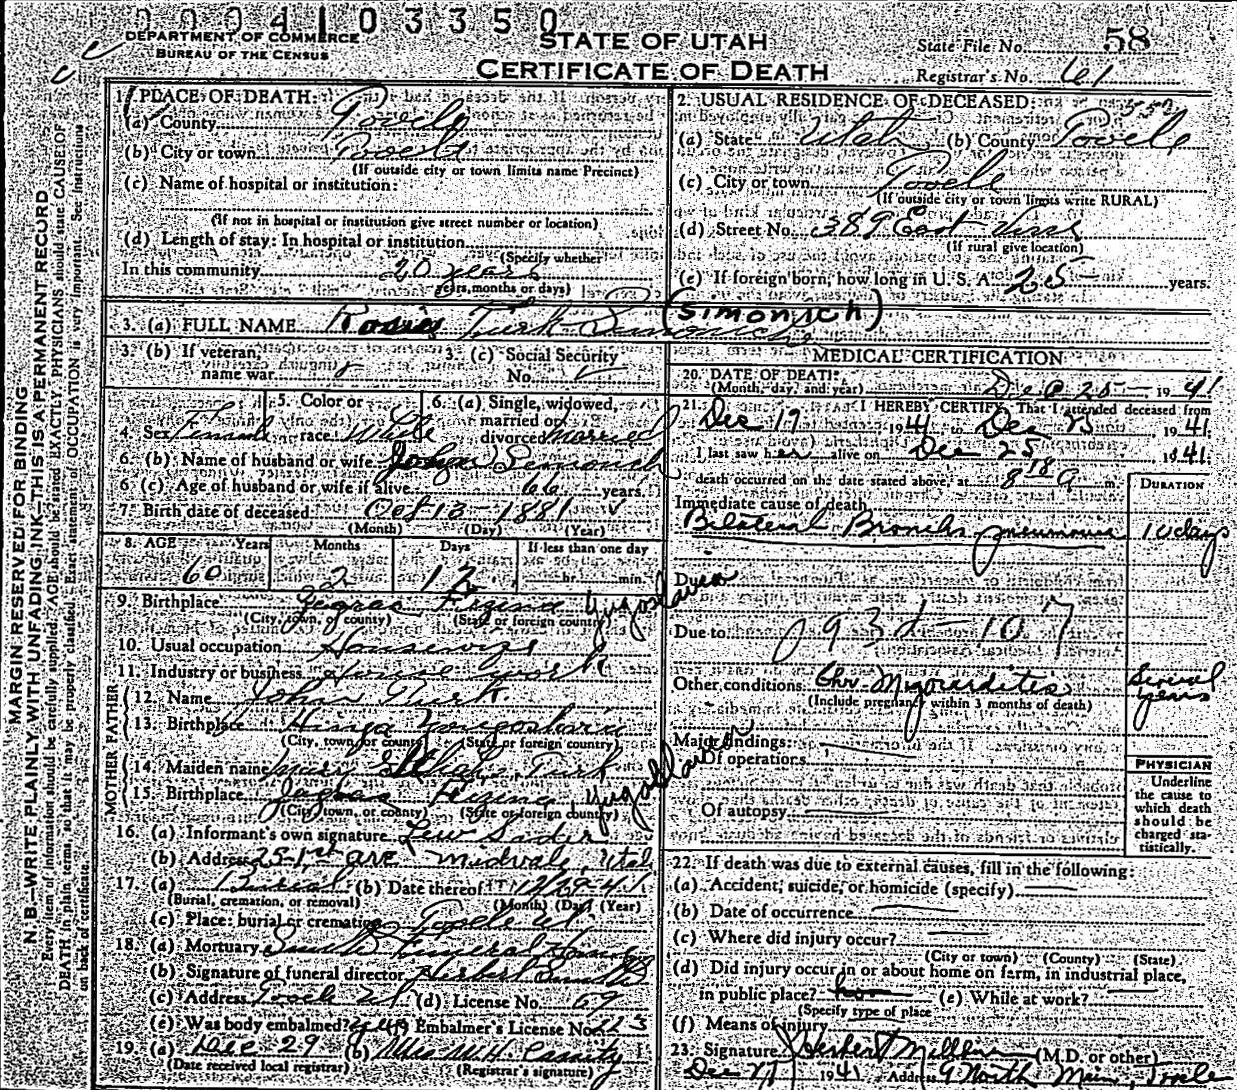 0004103350
DEPARTMENT OF COMMERCE
BUREAU OF THE CENSUS
STATE OF UTAH
CERTIFICATE OF DEATH
State File No. 58
Registrar's No. 61
MARGIN RESERVED FOR BINDING
N. B.—WRITE PLAINLY WITH UNFADING INK—THIS IS A PERMANENT RECORD
Every item of information should be carefully supplied. AGE should be stated EXACTLY. PHYSICIANS should state CAUSE OF
DEATH in plain terms, so that it may be properly classified. Exact statement of OCCUPATION is very important. See instructions
on back of certificate.
1. PLACE OF DEATH:
(a) County Tooele
(b) City or town Tooele
(If outside city or town limits name Precinct)
(c) Name of hospital or institution:
(If not in hospital or institution give street number or location)
(d) Length of stay: In hospital or institution
(Specify whether
In this community 20 years
years, months or days)
2. USUAL RESIDENCE OF DECEASED:
(a) State Utah (b) County Tooele
(c) City or town Tooele
(If outside city or town limits write RURAL)
(d) Street No. 389 East Vine
(If rural give location)
(e) If foreign born, how long in U. S. A. 25 years.
3. (a) FULL NAME Rosie Turk Simonich (SIMONICH)
3. (b) If veteran, name war
3. (c) Social Security No.
4. Sex Female
5. Color or race White
6. (a) Single, widowed, married or divorced Married
6. (b) Name of husband or wife John Semonich
6. (c) Age of husband or wife if alive 66 years.
7. Birth date of deceased Oct 13-1881
(Month) (Day) (Year)
8. AGE Years Months Days If less than one day
60 2 12 hr. min.
9. Birthplace Yugoslavia
(City, town, or county) (State or foreign country)
10. Usual occupation Housewife
11. Industry or business House work
FATHER
12. Name John Turk
13. Birthplace
(City, town or county) (State or foreign country)
MOTHER
14. Maiden name Mary Turk
15. Birthplace Yugoslavia
(City, town, or county) (State or foreign country)
16. (a) Informant's own signature Lew Sader
(b) Address 25-1st ave Midvale, Utah
17. (a) Burial (b) Date thereof 12/29-41
(Burial, cremation, or removal) (Month) (Day) (Year)
(c) Place: burial or cremation Tooele Ut.
18. (a) Mortuary Smith Funeral Home
(b) Signature of funeral director Herbert Smith
(c) Address Tooele Ut. (d) License No. 69
(e) Was body embalmed? yes Embalmer's License No. 223
19. (a) Dec 29 (b) Mrs W.H. Cassity
(Date received local registrar) (Registrar's signature)
MEDICAL CERTIFICATION
20. DATE OF DEATH:
(Month, day and year) Dec 25 1941
21. I HEREBY CERTIFY, That I attended deceased from
Dec 17 1941 to Dec 25 1941.
I last saw her alive on Dec 25 1941.
death occurred on the date stated above, at 8 18 A m.
DURATION
Immediate cause of death
Bilateral Broncho pneumonia 10 days
Due to
Due to
Other conditions Chr. Myocarditis Several years
(Include pregnancy within 3 months of death)
Major findings:
Of operations
Of autopsy
PHYSICIAN
Underline
the cause to
which death
should be
charged sta-
tistically.
22. If death was due to external causes, fill in the following:
(a) Accident, suicide, or homicide (specify)
(b) Date of occurrence
(c) Where did injury occur?
(City or town) (County) (State)
(d) Did injury occur in or about home on farm, in industrial place,
in public place? (e) While at work?
(Specify type of place
(f) Means of injury
23. Signature Herbert (M.D. or other)
Dec 27 1941 Address 9 North Main Tooele